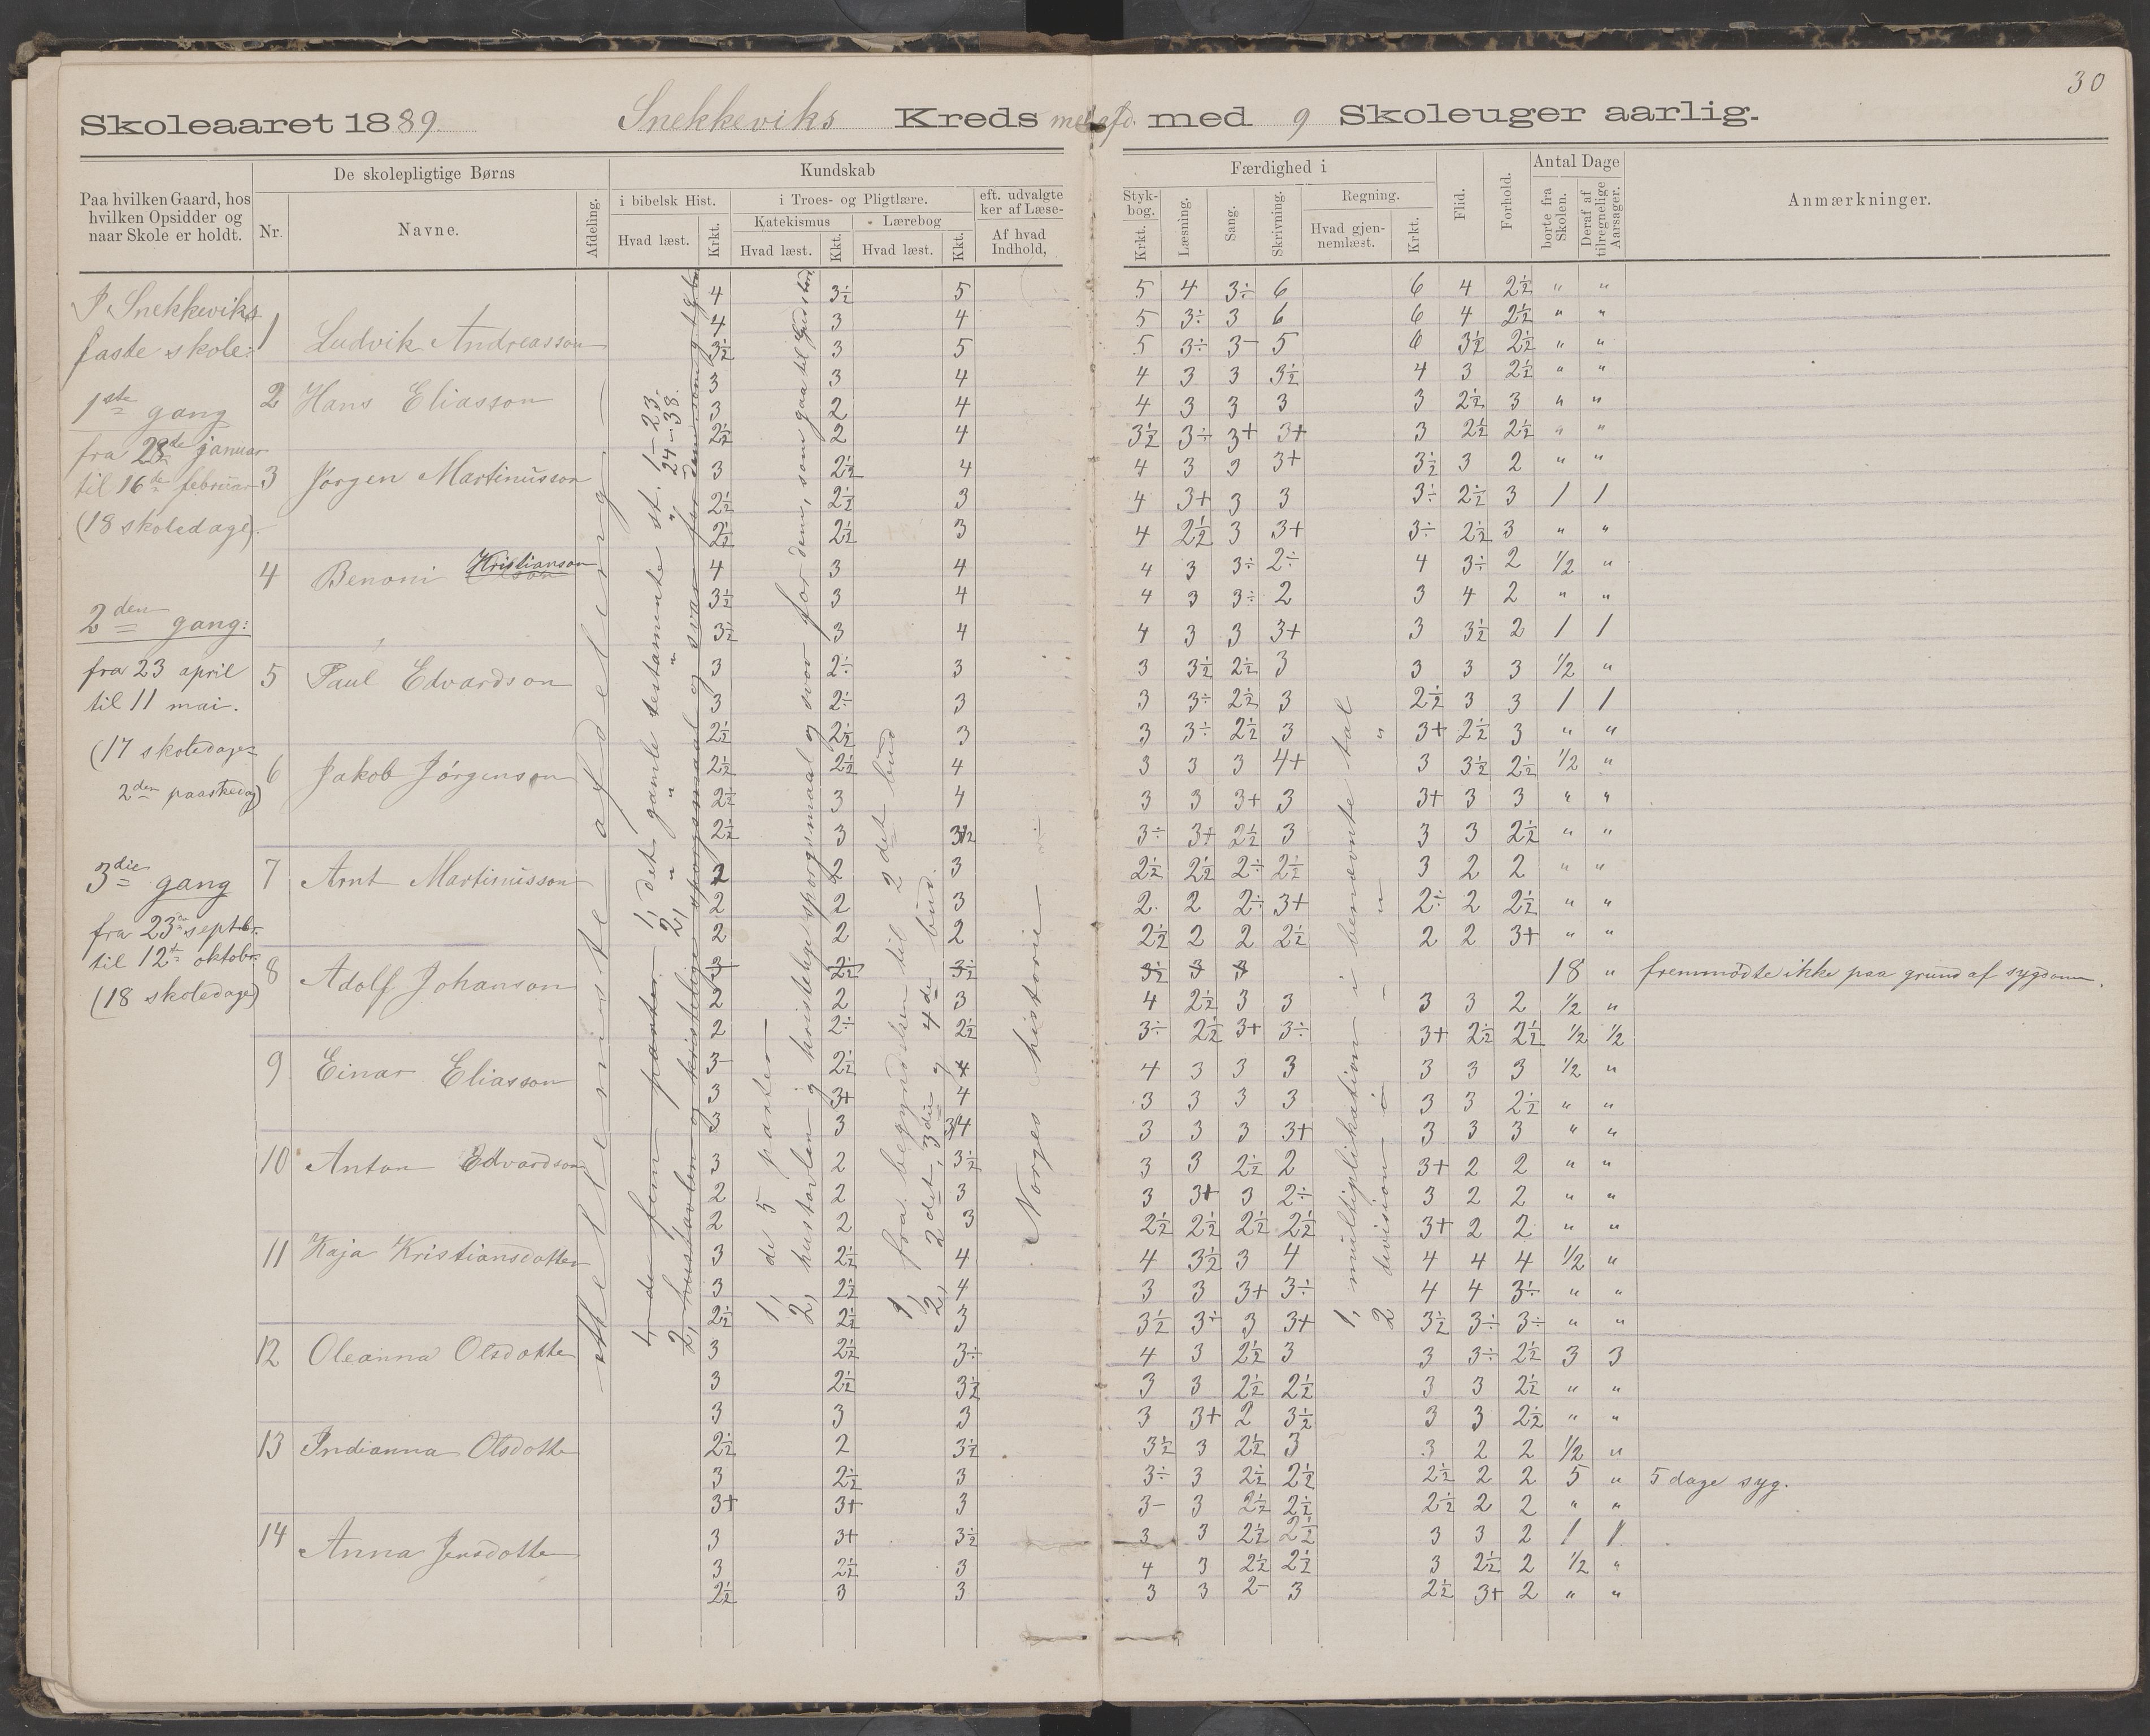 30
Skoleaaret 1889. Snekkeviks Kreds med 9 Skoleuger aarlig.
Paa hvilken Gaard, hos
hvilken Opsidder og
naar Skole er holdt.
De skolepligtige Børns
Nr. Navne.
Afdeling.
Kundskab
i bibelsk Hist.
Hvad læst. Krkt.
i Troes- og Pligtlære.
Katekismus - Lærebog
Hvad læst. Kkt. Hvad læst. Kkt.
eft. udvalgte
ker af Læse-
Af hvad
Indhold,
Færdighed i
Styk-
bog.
Krkt. Læsning. Sang. Skrivning.
Regning.
Hvad gjen-
nemlæst. Krkt.
Flid. Forhold.
Antal Dage
borte fra
Skolen.
Deraf af
tilregnelige
Aarsager.
Anmærkninger.
I Snekkeviks
faste skole:
1ste gang
fra 28de januar
til 16de februar
(18 skoledage).
2den gang:
fra 23 april
til 11 mai.
(17 skoledage
2den paaskedag)
3die gang
fra 23de septbr.
til 12te oktobr.
(18 skoledage)
afdeling
1, det gamle testamente st. 1-23.
2, " " " " 24-38.
1, de 5 parter
2, hustavlen
fra begyndelsen til 2det bud
2, 2det, 3die og 4de bud.
Norges historie
1, multiplikation i benævnte tal
2 division i - " "
1 Ludvik Andreasson
4 3½ 5 5 4 3÷ 6 6 4 2½ " "
4 3 4 5 3÷ 3 6 6 4 2½ " "
3½ 3 5 5 3÷ 3- 5 6 3½ 2½ " "
2 Hans Eliasson
3 3 4 4 3 3 3½ 4 3 2½ " "
3 2 4 4 3 3 3 3 2½ 3 " "
2½ 2 4 3½ 3÷ 3+ 3+ 3 2½ 2½ " "
3 Jørgen Martinusson
3 2½ 4 4 3 3 3+ 3½ 3 2 " "
2½ 2½ 3 4 3+ 3 3 3÷ 2½ 3 1 1
2½ 2½ 3 4 2½ 3 3+ 3÷ 2½ 3 " "
4 Benoni Kristianson
4 3 4 4 3 3÷ 2÷ 4 3÷ 2 1/2 "
3½ 3 4 4 3 3÷ 2 3 4 2 " "
3½ 3 4 4 3 3 3+ 3 3½ 2 1 1
5 Paul Edvardson
3 2÷ 3 3 3½ 2½ 3 3 3 3 1/2 "
3 2÷ 3 3 3÷ 2½ 3 2½ 3 3 1 1
2½ 2½ 3 3 3÷ 2½ 3 3+ 2½ 3 " "
6 Jakob Jørgenson
2½ 2½ 4 3 3 3 4+ 3 3½ 2½ 1/2 "
2½ 3 4 3 3 3+ 3 3+ 3 3 " "
2½ 3 3½ 3÷ 3+ 2½ 3 3 3 2½ " "
7 Arnt Martinusson
2 2 3 2½ 2½ 2÷ 2½ 3 2 2 " "
2 2 3 2 2 2÷ 3+ 2÷ 2 2½ " "
2 2 2 2½ 2 2 2½ 2 2 3+ " "
8 Adolf Johanson
3 2½ 3½ 3½ 3 3 18 " fremmødte ikke paa grund af sygdom.
2 2 3 4 2½ 3 3 3 3 2 1/2 "
2 2÷ 2½ 3÷ 2½ 3+ 3÷ 3+ 2½ 2½ 1/2 1/2
9 Einar Eliasson
3- 2½ 4 4 3 3 3 3 3 3 1/2 "
3 3+ 4 3 3 3 3 3 3 2½ " "
3 3 3/4 3 3 3 3+ 3 3 3 " "
10 Anton Edvardson
3 2 3½ 3 3 2½ 2 3+ 2 2 " "
2 2 3 3 3+ 3 2÷ 3 2 2 " "
2 2 3 2½ 2½ 2½ 2½ 3+ 2 2 " "
11 Kaja Kristiansdotter
3 2½ 4 4 3½ 3 4 4 4 4 1/2 "
3 2½ 4 3 3 3+ 3÷ 4 4 3÷ " "
2½ 2½ 3 3½ 3÷ 3 3+ 3½ 3÷ 3÷ " "
12 Oleanna Olsdotte
3 2½ 3÷ 4 3 2½ 3 3 3÷ 2½ 3 3
3 2½ 3½ 3 3 2½ 2½ 3 3 2½ " "
3 3 3 3 3+ 2 3½ 3 3 2½ " "
13 Indianna Olsdotte
2½ 2 3½ 3½ 3 2½ 3 3 2 2 1/2 "
3 2½ 3 3÷ 3 2½ 2½ 2½ 2 2 5 " 5 dage syg.
3+ 3+ 3 3- 3 2½ 2½ 2½ 2 2 " "
14 Anna Jensdotte
3 3+ 3½ 3 3 2½ 2½ 3 3 2 1 1
3 2½ 3 4 3 2½ 2½ 3 2½ 2 1/2 "
2½ 3 3 3 3 2- 3 2½ 3+ 2 " "